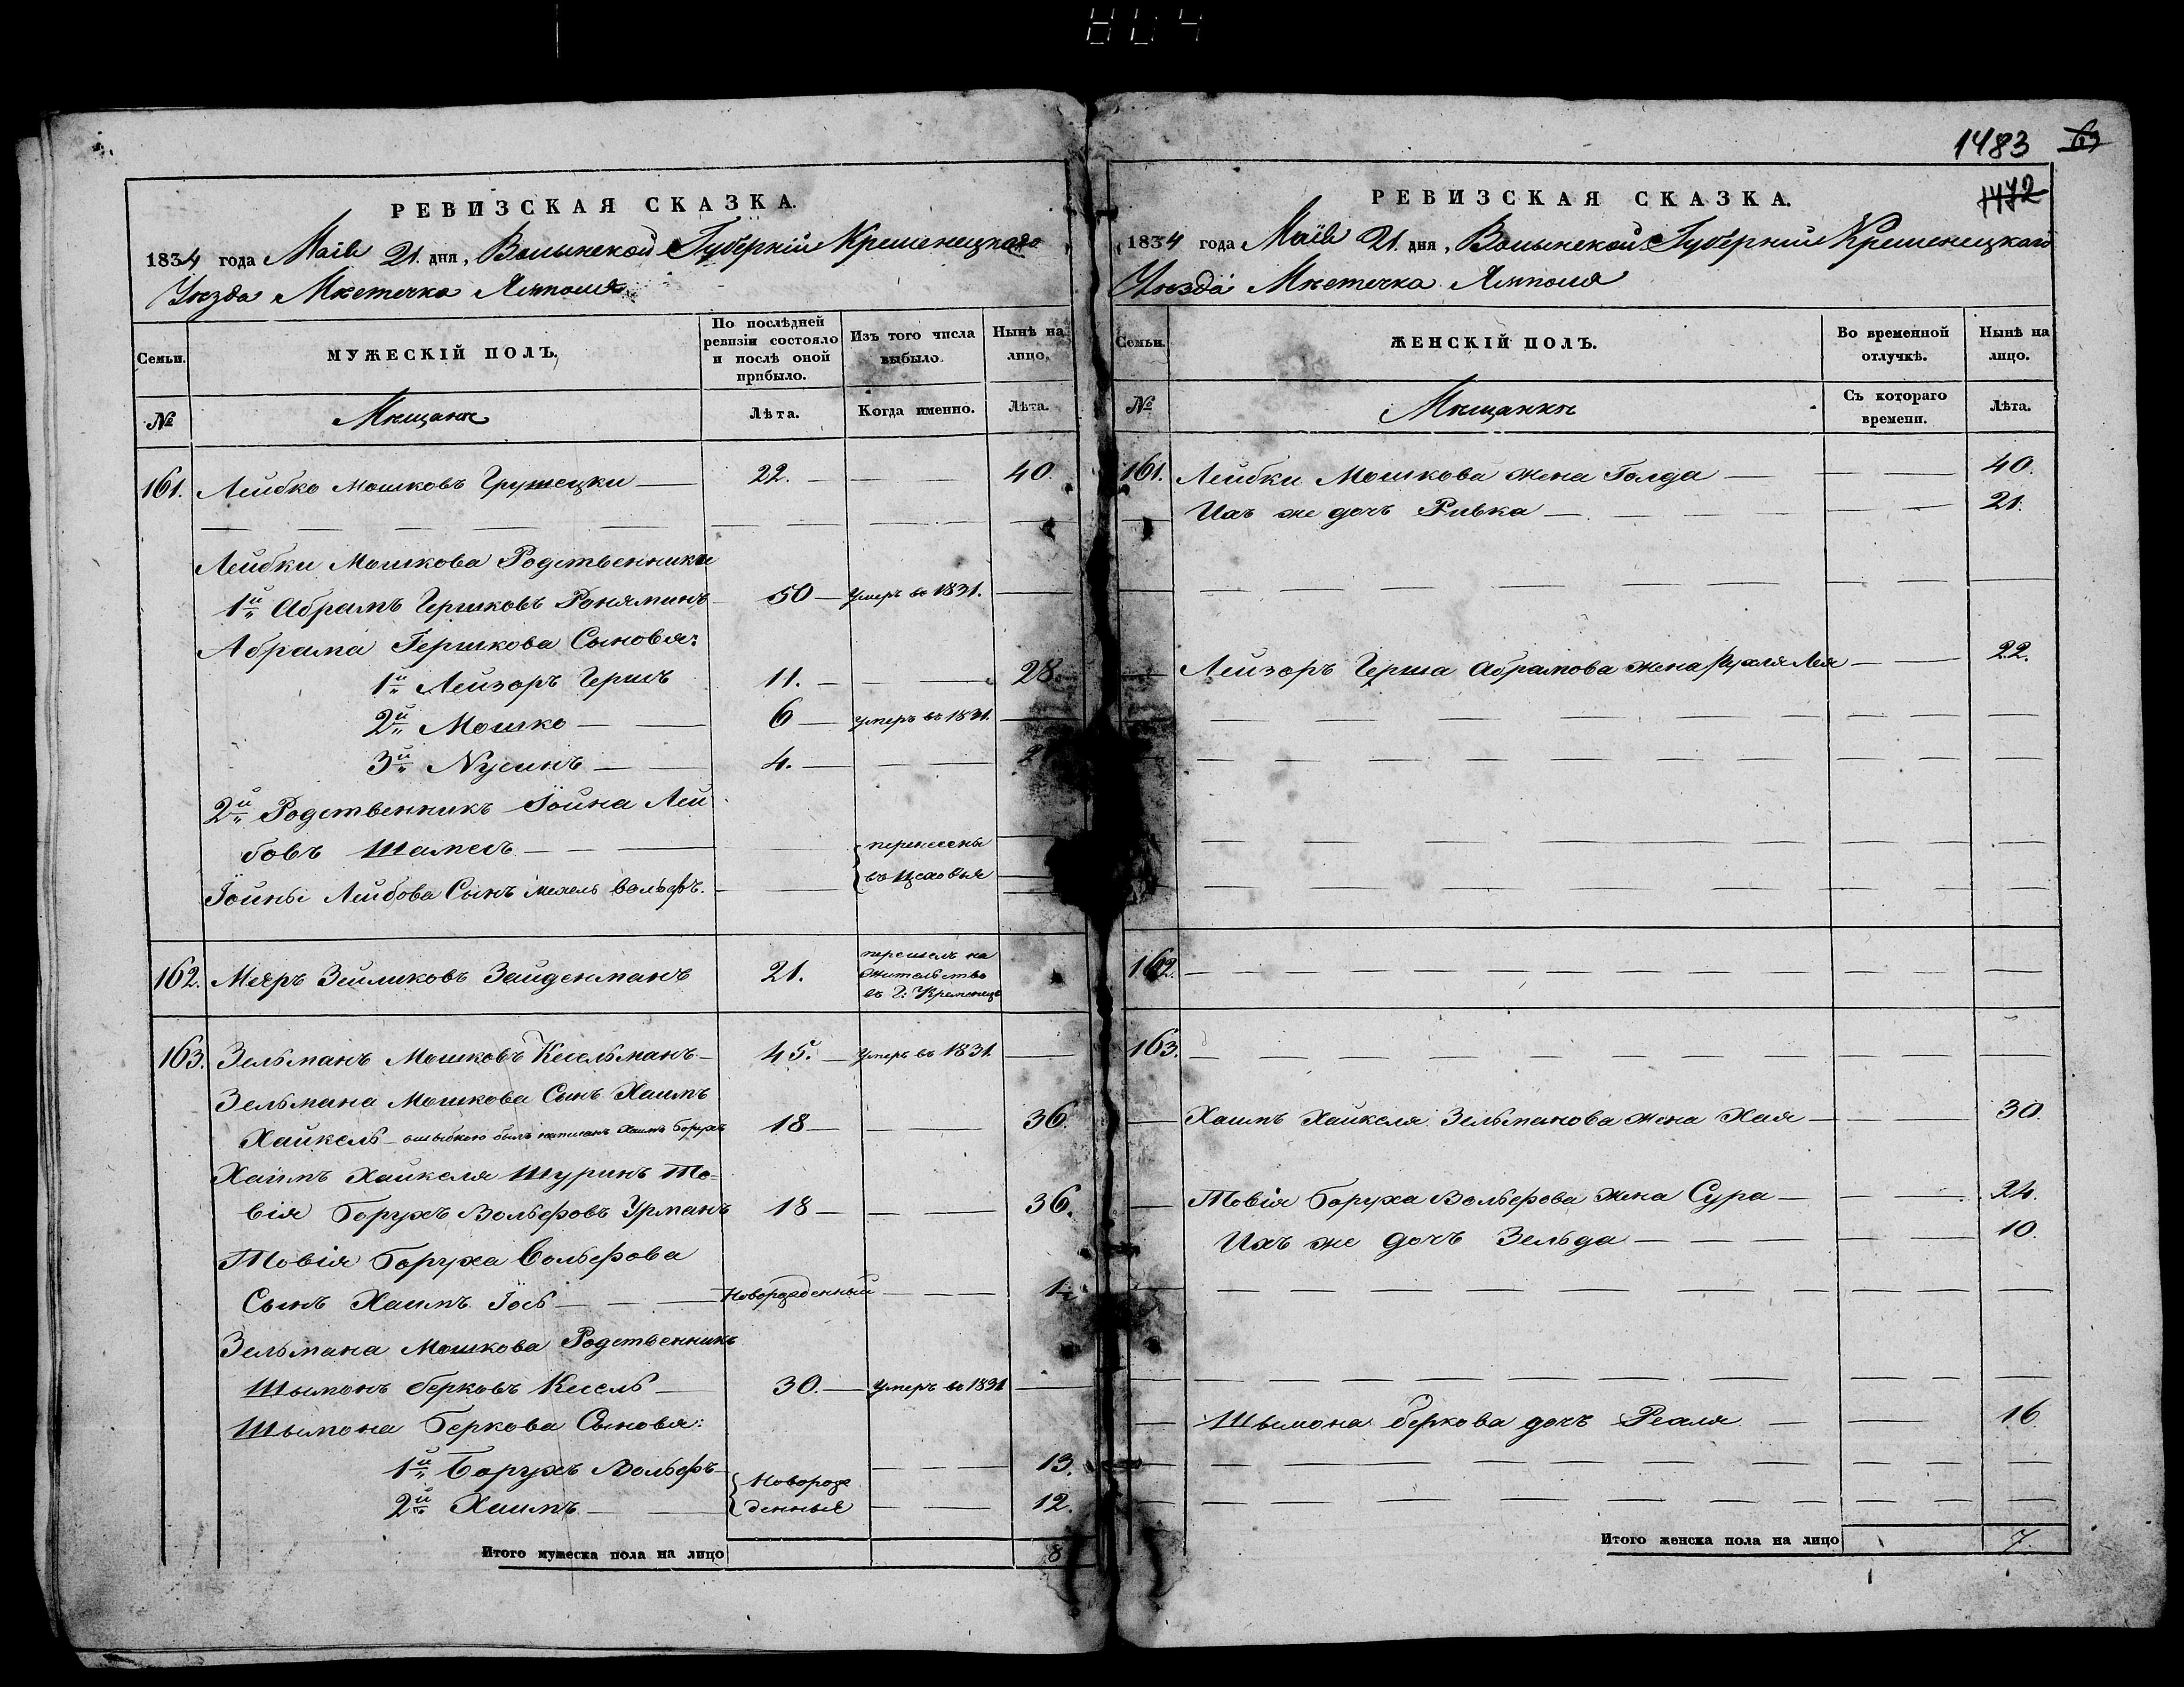 1483
1472
РЕВИЗСКАЯ СКАЗКА.
1834 года Маія 21. дня, Волынской Губерніи Кременецкаго
Уѣзда Мѣстечка Ямполя
Семьи.
МУЖЕСКІЙ ПОЛЪ.
По послѣдней ревизіи состояло и послѣ оной прибыло.
Изъ того числа выбыло.
Нынѣ на лицо.
№
Мѣщане
Лѣта.
Когда именно.
Лѣта.
161. Лейбко Мошковъ Грушецки 22. 40.
Лейбки Мошкова Родственники
1й Абрамъ Гершковъ Роняминъ 50 Умеръ въ 1831.
Абрама Гершкова Сыновья:
1й Лейзоръ Гершъ 11. 28.
2й Мошко 6 умеръ въ 1831.
3й Нусинъ 4.
2й Родственникъ Іойна Лей
бовъ Шамесъ перенесены
Іойны Лейбова Сынъ Мехель Вольфъ. въ Цеховыя
162. Мееръ Зейликовъ Зайденманъ 21. перешелъ на
жительство
въ Г: Кременецъ
163. Зельманъ Мошковъ Кесельманъ 45. Умеръ въ 1831.
Зельмана Мошкова Сынъ Хаимъ
Хайкель ошыбкою былъ написанъ Хаимъ Борухъ 18 36.
Хаимъ Хайкеля Шуринъ То-
вія Борухъ Вольфовъ Урманъ 18 36.
Товія Боруха Вольфова
Сынъ Хаимъ Іось Новорожденный 1
Зельмана Мошкова Родственникъ
Шымонъ Берковъ Кесель 30. Умеръ въ 1831
Шымона Беркова Сыновья:
1й Борухъ Вольфъ Новорож 13.
2й Хаимъ денныя 12.
Итого мужеска пола на лицо 8
РЕВИЗСКАЯ СКАЗКА.
1834 года Маія 21. дня, Волынской Губерніи Кременецкаго
Уѣзда Мѣстечка Ямполя
Семьи.
ЖЕНСКІЙ ПОЛЪ.
Во временной отлучкѣ.
Нынѣ на лицо.
№
Мѣщанки
Съ котораго времени.
Лѣта.
161. Лейбки Мошкова жена Голда 40.
Ихъ же дочь Ривка 21.
Лейзоръ Герша Абрамова жена Рухля Лея 22.
162.
163.
Хаимъ Хайкеля Зельманова жена Хая 30.
Товія Боруха Вольфова жена Сура 24.
Ихъ же дочъ Зельда 10.
Шымона Беркова дочъ Рехля 16
Итого женска пола на лицо 7